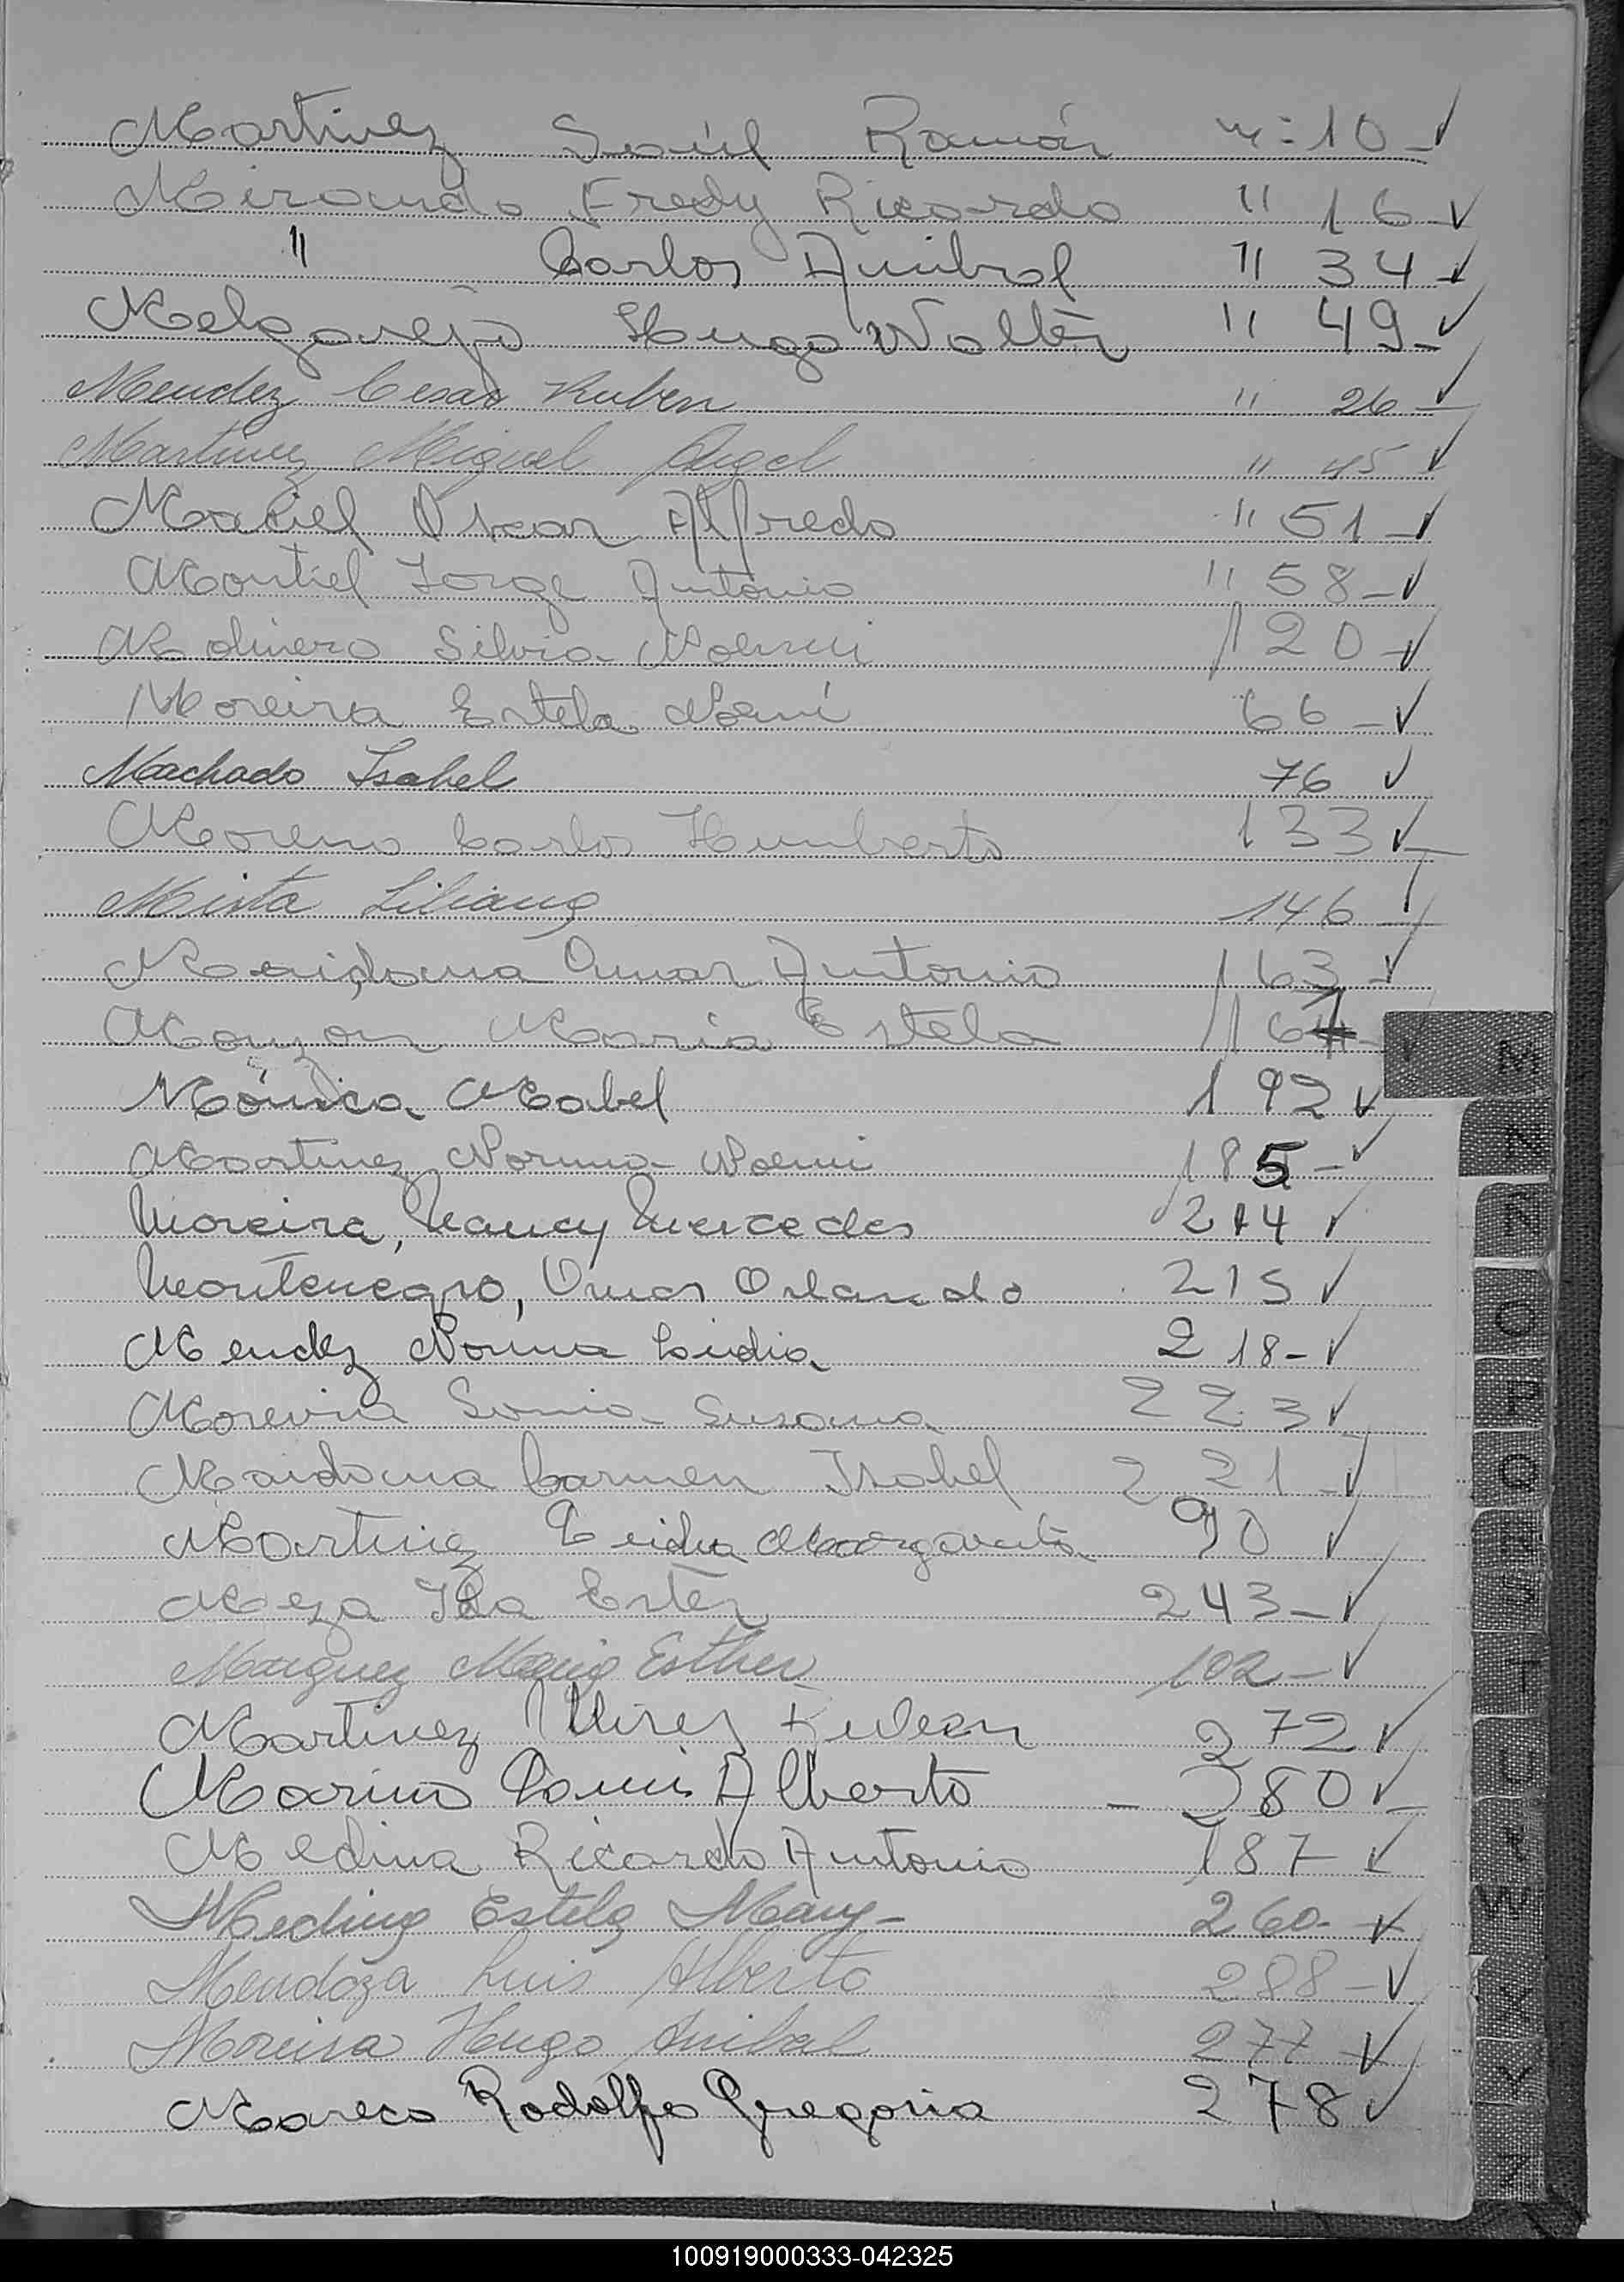 Martinez Saúl Ramón n: 10 - ✓
Miranda Fredy Ricardo " 16 - ✓
" Carlos Anibal " 34 - ✓
Melgarejo Hugo Walter " 49 - ✓
Mendez Cesar Ruben " 26 - ✓
Martinez Miguel Angel " 45 - ✓
Maciel Oscar Alfredo " 51 - ✓
Montiel Jorge Antonio " 58 - ✓
Molinero Silvia Noemi 120 - ✓
Moreira Estela Noemí 66 - ✓
Machado Isabel 76 ✓
Moreno Carlos Humberto 133 ✓
Mirta Liliana 146 -
Maidana Omar Antonio 163 - ✓
Monzon Maria Estela
Mónica Mabel 192 ✓
Martinez Norma Noemi 185 - ✓
Moreira, Nancy Mercedes 214 ✓
Montenegro, Omar Orlando 215 ✓
Mendez Norma Lidia 218 - ✓
Moreira Sonia Susana 223 ✓
Maidana Carmen Isabel 221 - ✓
Martinez Margarita 90 ✓
Meza Ida Ester 243 - ✓
Marquez Maria Esther 102 - ✓
Martinez Ruben 272 ✓
Marino Luis Alberto - 280 ✓
Medina Ricardo Antonio 187 ✓
Medina Estela Mary - 260 - ✓
Mendoza Luis Alberto 288 - ✓
Moreira Hugo Anibal 277 ✓
Mareco Rodolfo Gregorio 278 ✓
M
N
Ñ
O
P
Q
R
S
T
U
V
W
X
Y
Z
100919000333-042325